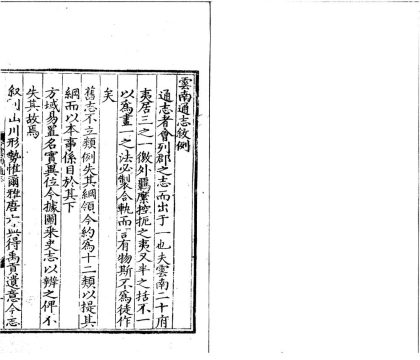 雲南通志敘例
通志者會列郡之志而出于一也夫雲南二十府
夷居三之一徼外羈縻控扼之夷又半之括不一
以為畫一之法必製合軌而言有物斯不為徒作
矣
舊志不立類例失其綱領今約為十二類以提其
綱而以本事係目於其下
方域易置名實異位今據圖采史志以辨之俾不
失其故焉
敘列山川形勢惟爾雅唐六典得禹貢遺意今志